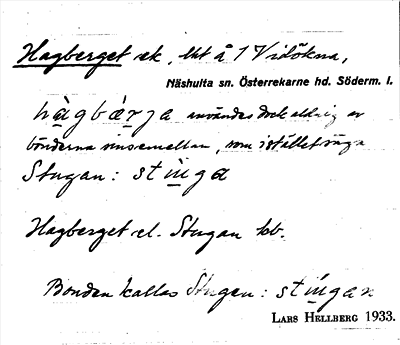 Hagberget ek, lht å 1 Vidökna,
Näshulta sn. Österrekarne hd. Söderm. l.
hàgbærja användes dock aldrig av
bönderna sinsemellan, som istället säga
Stugan: stúga
Hagberget el. Stugan kb.
Bonden kallas Stugen: stúgan
LARS HELLBERG 1933.